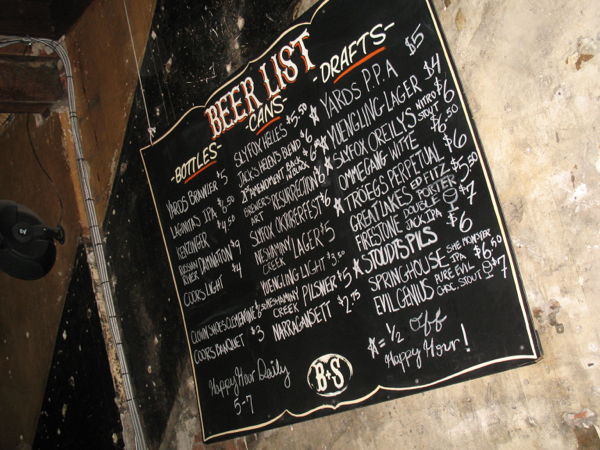 BEER LIST
-BOTTLES-
YARDS BRAWLER $5
LAGUNITAS IPA $5.50
KENZINGER $4.50
RUSSIAN RIVER DAMNATION $9
COORS LIGHT $4
CLOWN SHOES CLEMENTINE
COORS BANQUET $3
-CANS-
SLYFOX HELLES $5.50
JACK'S ABBY BLEND $6
21st AMENDMENT
BREWER'S ART RESURRECTION $6
SLYFOX OKTOBERFEST $6
NESHAMINY CREEK LAGER $5
YUENGLING LIGHT $3.50
NESHAMINY CREEK PILSNER $5
NARRAGANSETT $2.75
-DRAFTS-
★ YARDS P.P.A $5
★ YUENGLING LAGER $4
SLYFOX O'REILLYS NITRO STOUT $6
OMMEGANG WITTE
★ TRÖEGS PERPETUAL $6
GREAT LAKES ED FITZ PORTER $5.50
FIRESTONE DOUBLE JACK IPA $7
★ STOUDTS PILS $6
SPRINGHOUSE SHE MONSTER IPA $6.50
EVIL GENIUS PURE EVIL CHOC. STOUT $7
Happy Hour Daily
5-7
B&S
★ = 1/2 off
Happy Hour!